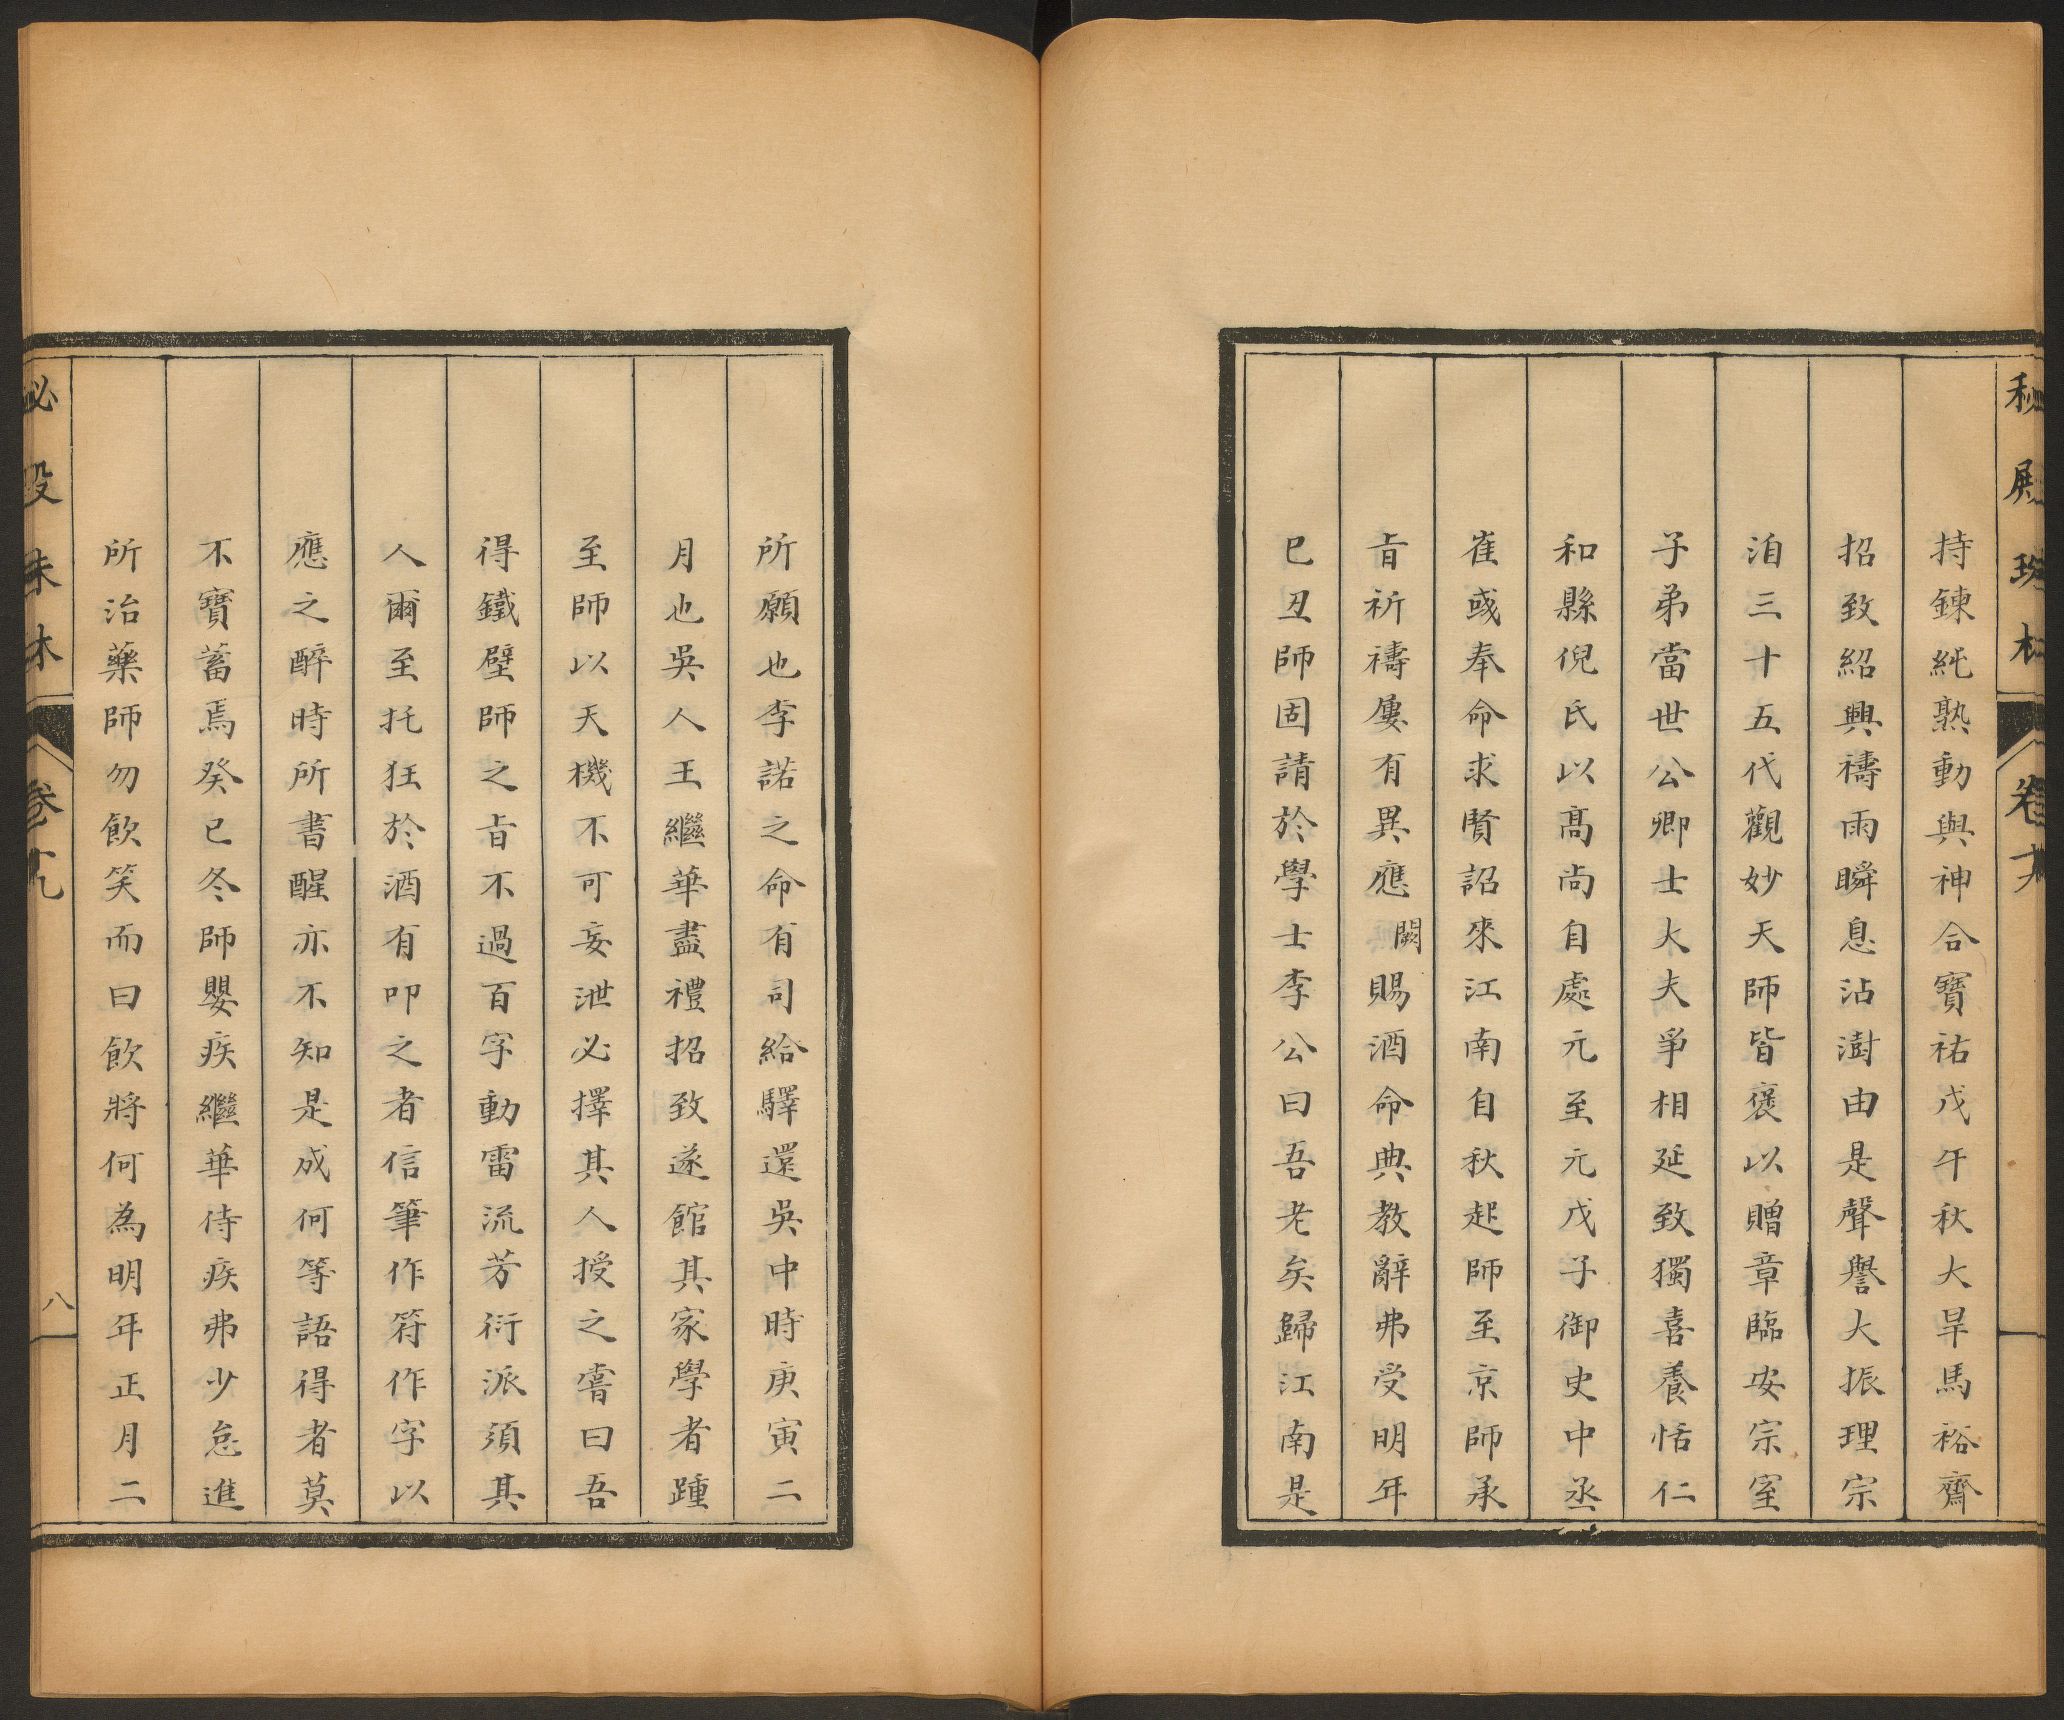 秘殿珠林
卷十九
持鍊純熟動與神合寶祐戊午秋大旱馬裕齋
招致紹興禱雨瞬息沾澍由是聲譽大振理宗
洎三十五代觀妙天師皆褒以贈章臨安宗室
子弟當世公卿士大夫爭相延致獨喜養恬仁
和縣倪氏以高尚自處元至元戊子御史中丞
崔彧奉命求賢詔來江南自秋起師至京師承
旨祈禱屢有異應闕賜酒命典教辭弗受明年
已丑師固請於學士李公曰吾老矣歸江南是
所願也李諾之命有司給驛還吳中時庚寅二
月也吳人王繼華盡禮招致遂館其家學者踵
至師以天機不可妄泄必擇其人授之嘗曰吾
得鐵壁師之旨不過百字動雷流芳衍派須其
人爾至托狂於酒有叩之者信筆作符作字以
應之醉時所書醒亦不知是成何等語得者莫
不寶蓄焉癸已冬師嬰疾繼華侍疾弗少怠進
所治藥師勿飲笑而曰飲將何為明年正月二
秘殿珠林
卷十九
八